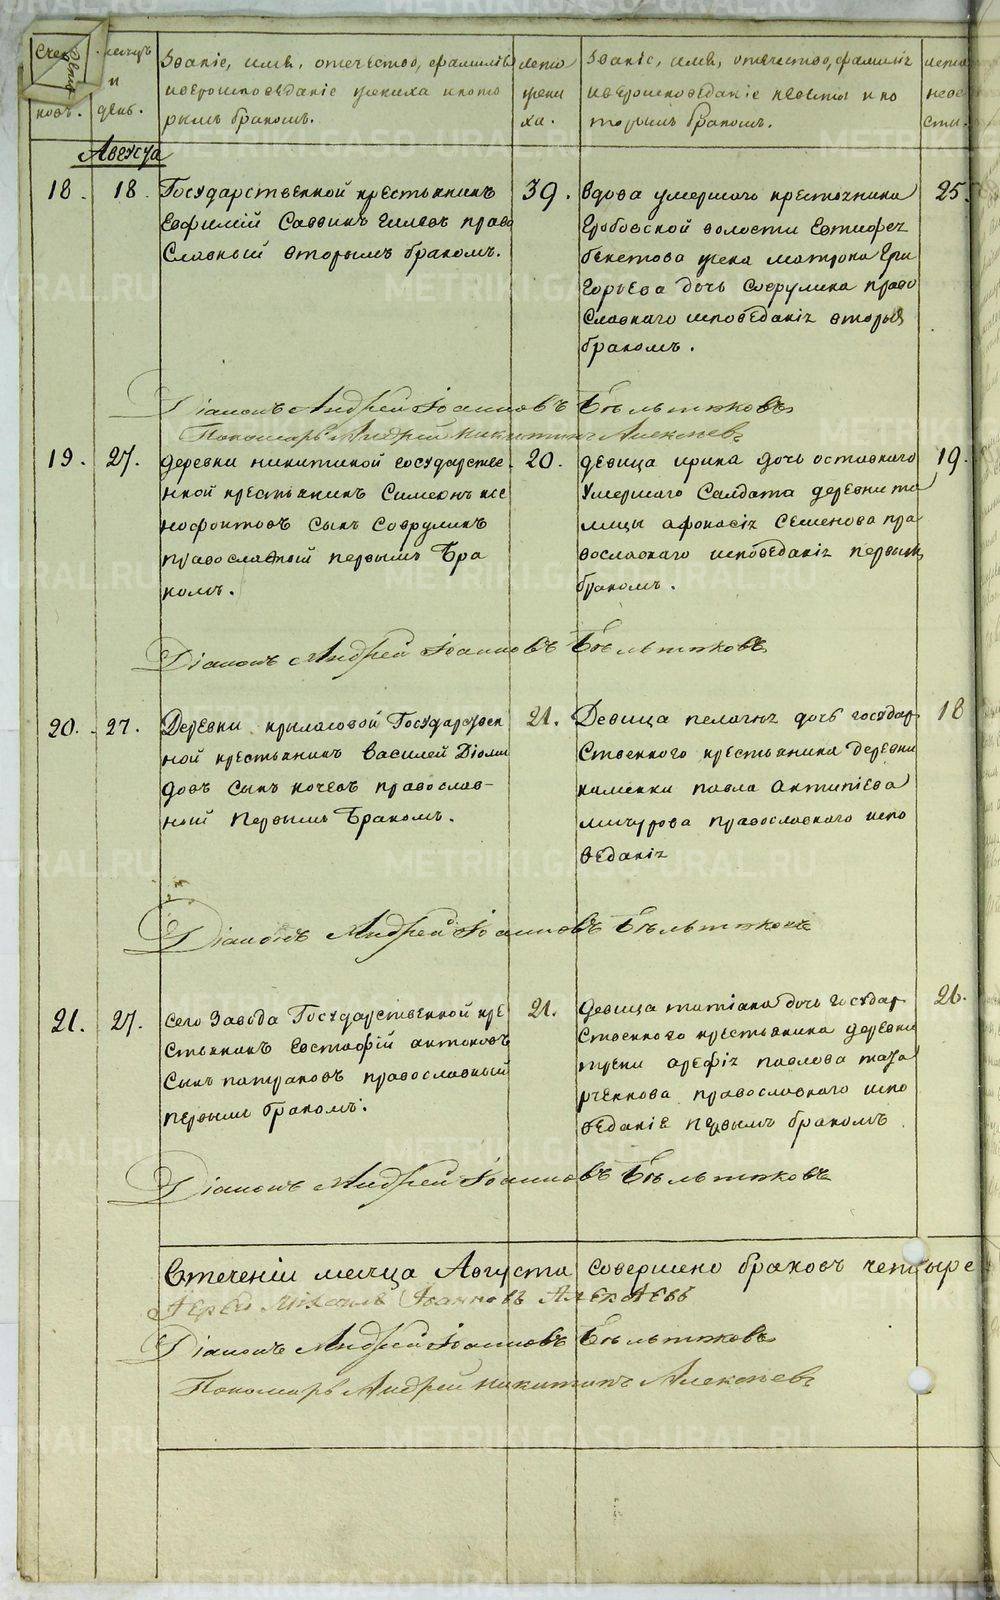 Счетъ браковъ.
Месяцъ и день.
Званіе, имя, отечество, фамилія
и вероисповеданіе жениха и кото
рымъ бракомъ.
Лета
жени
ха.
Званіе, имя, отечество, фамилія
и вероисповеданіе невесты и ко
торымъ бракомъ.
лета
неве
сты.
Августа
18. 18.
Государственной крестьянинъ
Евфимій Саввинъ Гилевъ право
Славный вторымъ бракомъ.
39.
вдова умершаго крестьянина
Гробовской волости Евтифея
бекетова жена матрона Гри
Горьева дочь Соврулина право
Славнаго исповеданія вторым
бракомъ.
25.
Діаконъ Андрей Іоанновъ Бельтюковъ
Пономарь Андрей никитинъ Алексеевъ
19. 27.
деревни никитиной государстве
нной крестьянинъ Симеонъ ксе
нофонтовъ Сынъ Соврулинъ
православный первымъ Бра
комъ.
20.
девица ирина дочь оставнаго
умершаго Солдата деревни та
лицы афонасія Семенова пра
вославнаго исповеданія первым
бракомъ.
19.
Діаконъ Андрей Іоанновъ Бельтюковъ
20. 27.
Деревни крыласовой Государствен
ной крестьянинъ Василей Діоми
довъ Сынъ кочевъ православ-
ный Первымъ Бракомъ.
21.
Девица пелагия дочь государ
Ственного крестьянина деревни
каменки павла Антипіева
мичурова православнаго испо
веданія
18
Діаконъ Андрей Іоанновъ Бельтюковъ
21. 27.
Сего Завода Государственной кре
Стьянинъ Евстафій антоновъ
Сынъ патраковъ православный
первымъ бракомъ.
21.
девица татіана дочь Государ
Ственного крестьянина деревни
треки арефія павлова
православнаго испо
веданіе первымъ бракомъ
26.
Діаконъ Андрей Іоанновъ Бельтюковъ
Втеченіи месяца Августа совершено браковъ четыре
Іерей Михаилъ Іоанновъ
Діаконъ Андрей Іоанновъ Бельтюковъ
Пономарь Андрей никитинъ Алексеевъ
METRIKI.GASO-URAL.RU